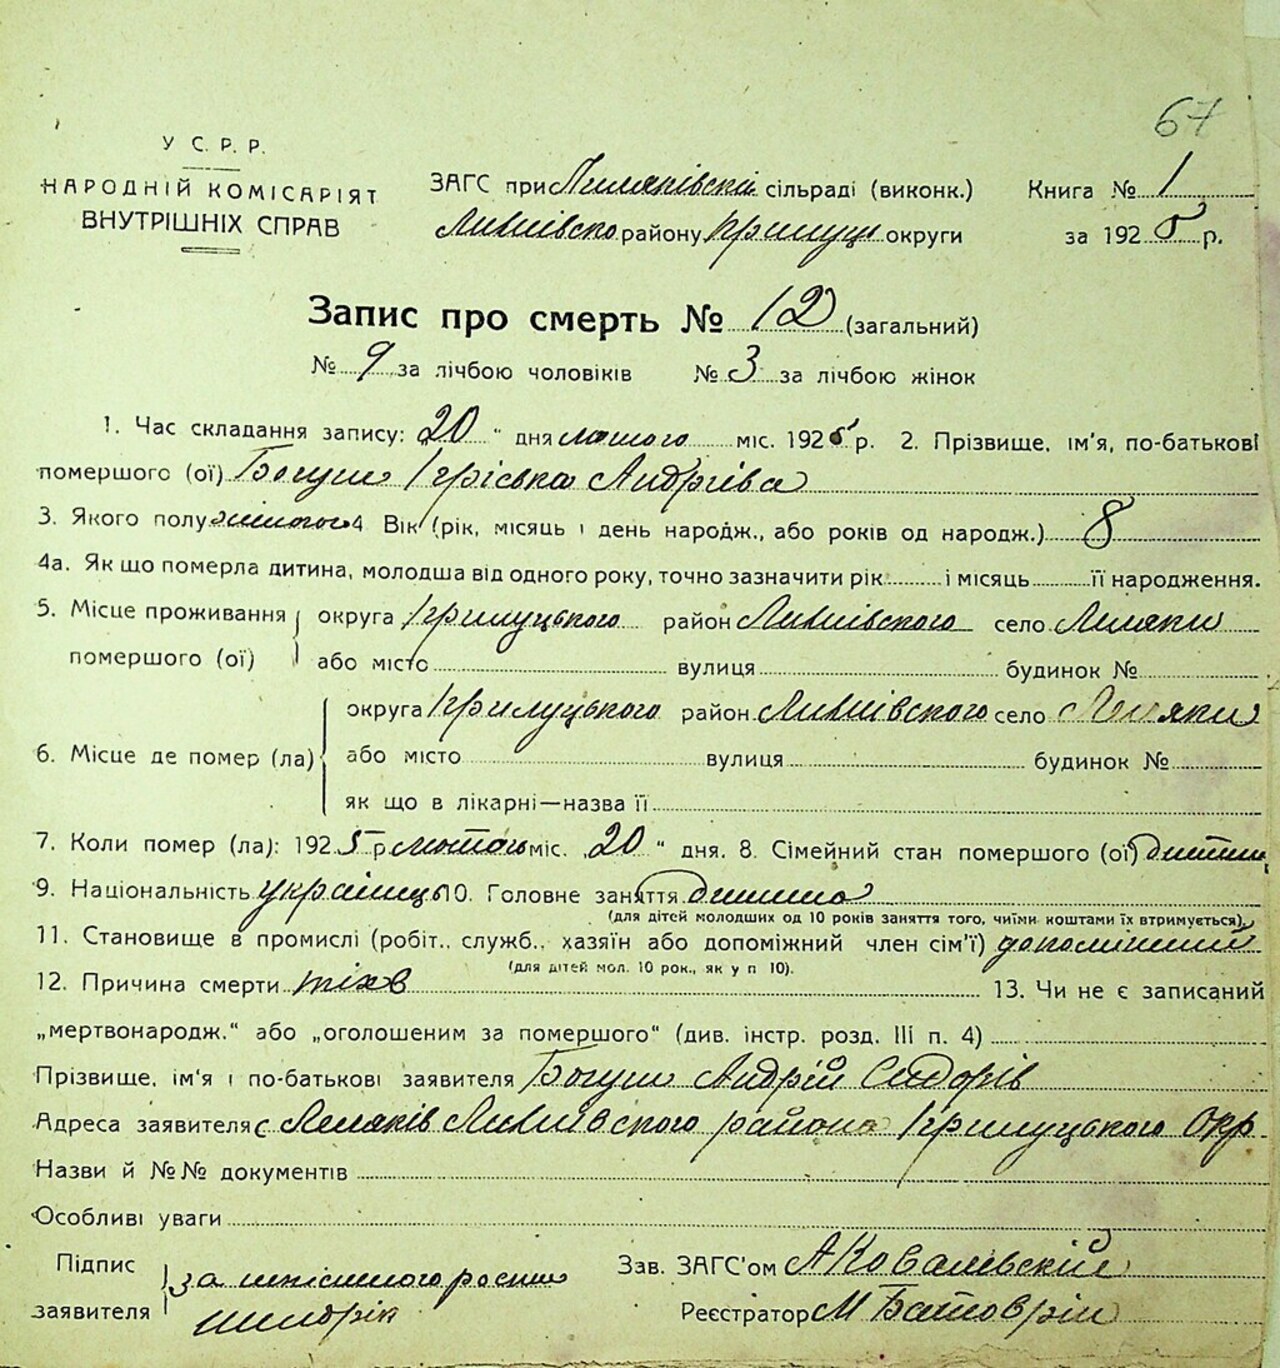 67
У С. Р. Р.
НАРОДНІЙ КОМІСАРІЯТ
ВНУТРІШНІХ СПРАВ
ЗАГС при сільраді (виконк.)
району округи
Книга № 1
за 1925 р.
Запис про смерть № 12 (загальний)
№ 9 за лічбою чоловіків № 3 за лічбою жінок
1. Час складання запису: 20 " дня лютого міс. 1925 р. 2. Прізвище, ім'я, по-батькові
помершого (ої) Богуш Андріева
3. Якого полу 4 Вік (рік, місяць і день народж., або років од народж.) 8
4а. Як що померла дитина, молодша від одного року, точно зазначити рік і місяць її народження.
5. Місце проживання помершого (ої) округа Прилуцького район село Лиляки
або місто вулиця будинок №
6. Місце де помер (ла) округа Прилуцького район село Лиляки
або місто вулиця будинок №
як що в лікарні—назва її
7. Коли помер (ла): 1925 р лютого міс. „20 " дня. 8. Сімейний стан помершого (ої) дитина
9. Національність українць 10. Головне заняття дитина
(для дітей молодших од 10 років заняття того, чиїми коштами їх втримується).
11. Становище в промислі (робіт., служб., хазяїн або допоміжний член сім'ї) допоміжний
(для дітей мол. 10 рок., як у п 10).
12. Причина смерти 13. Чи не є записаний
„мертвонародж.“ або „оголошеним за помершого“ (див. інстр. розд. III п. 4)
Прізвище, ім'я і по-батькові заявителя Богуш Андрій Сидорів
Адреса заявителя с района Прилуцького Окр
Назви й №№ документів
Особливі уваги
Підпис заявителя за
Зав. ЗАГС'ом А Ковалевский
Реєстратор М